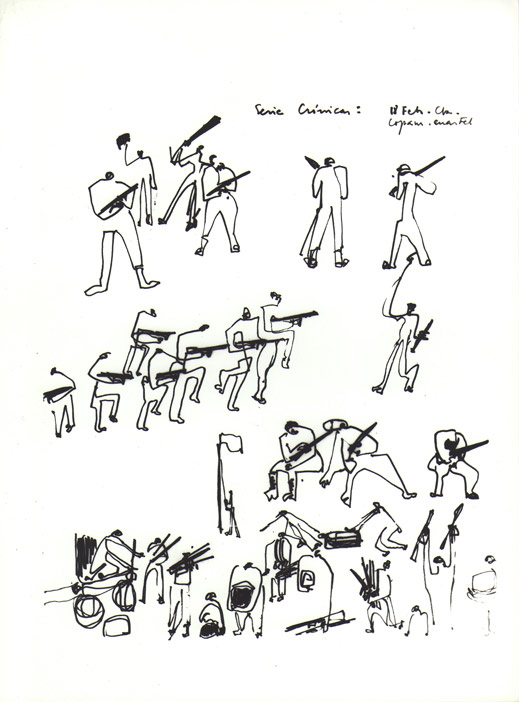 Serie Crónicas: 11 Feb. Cba.
Copam. cuartel